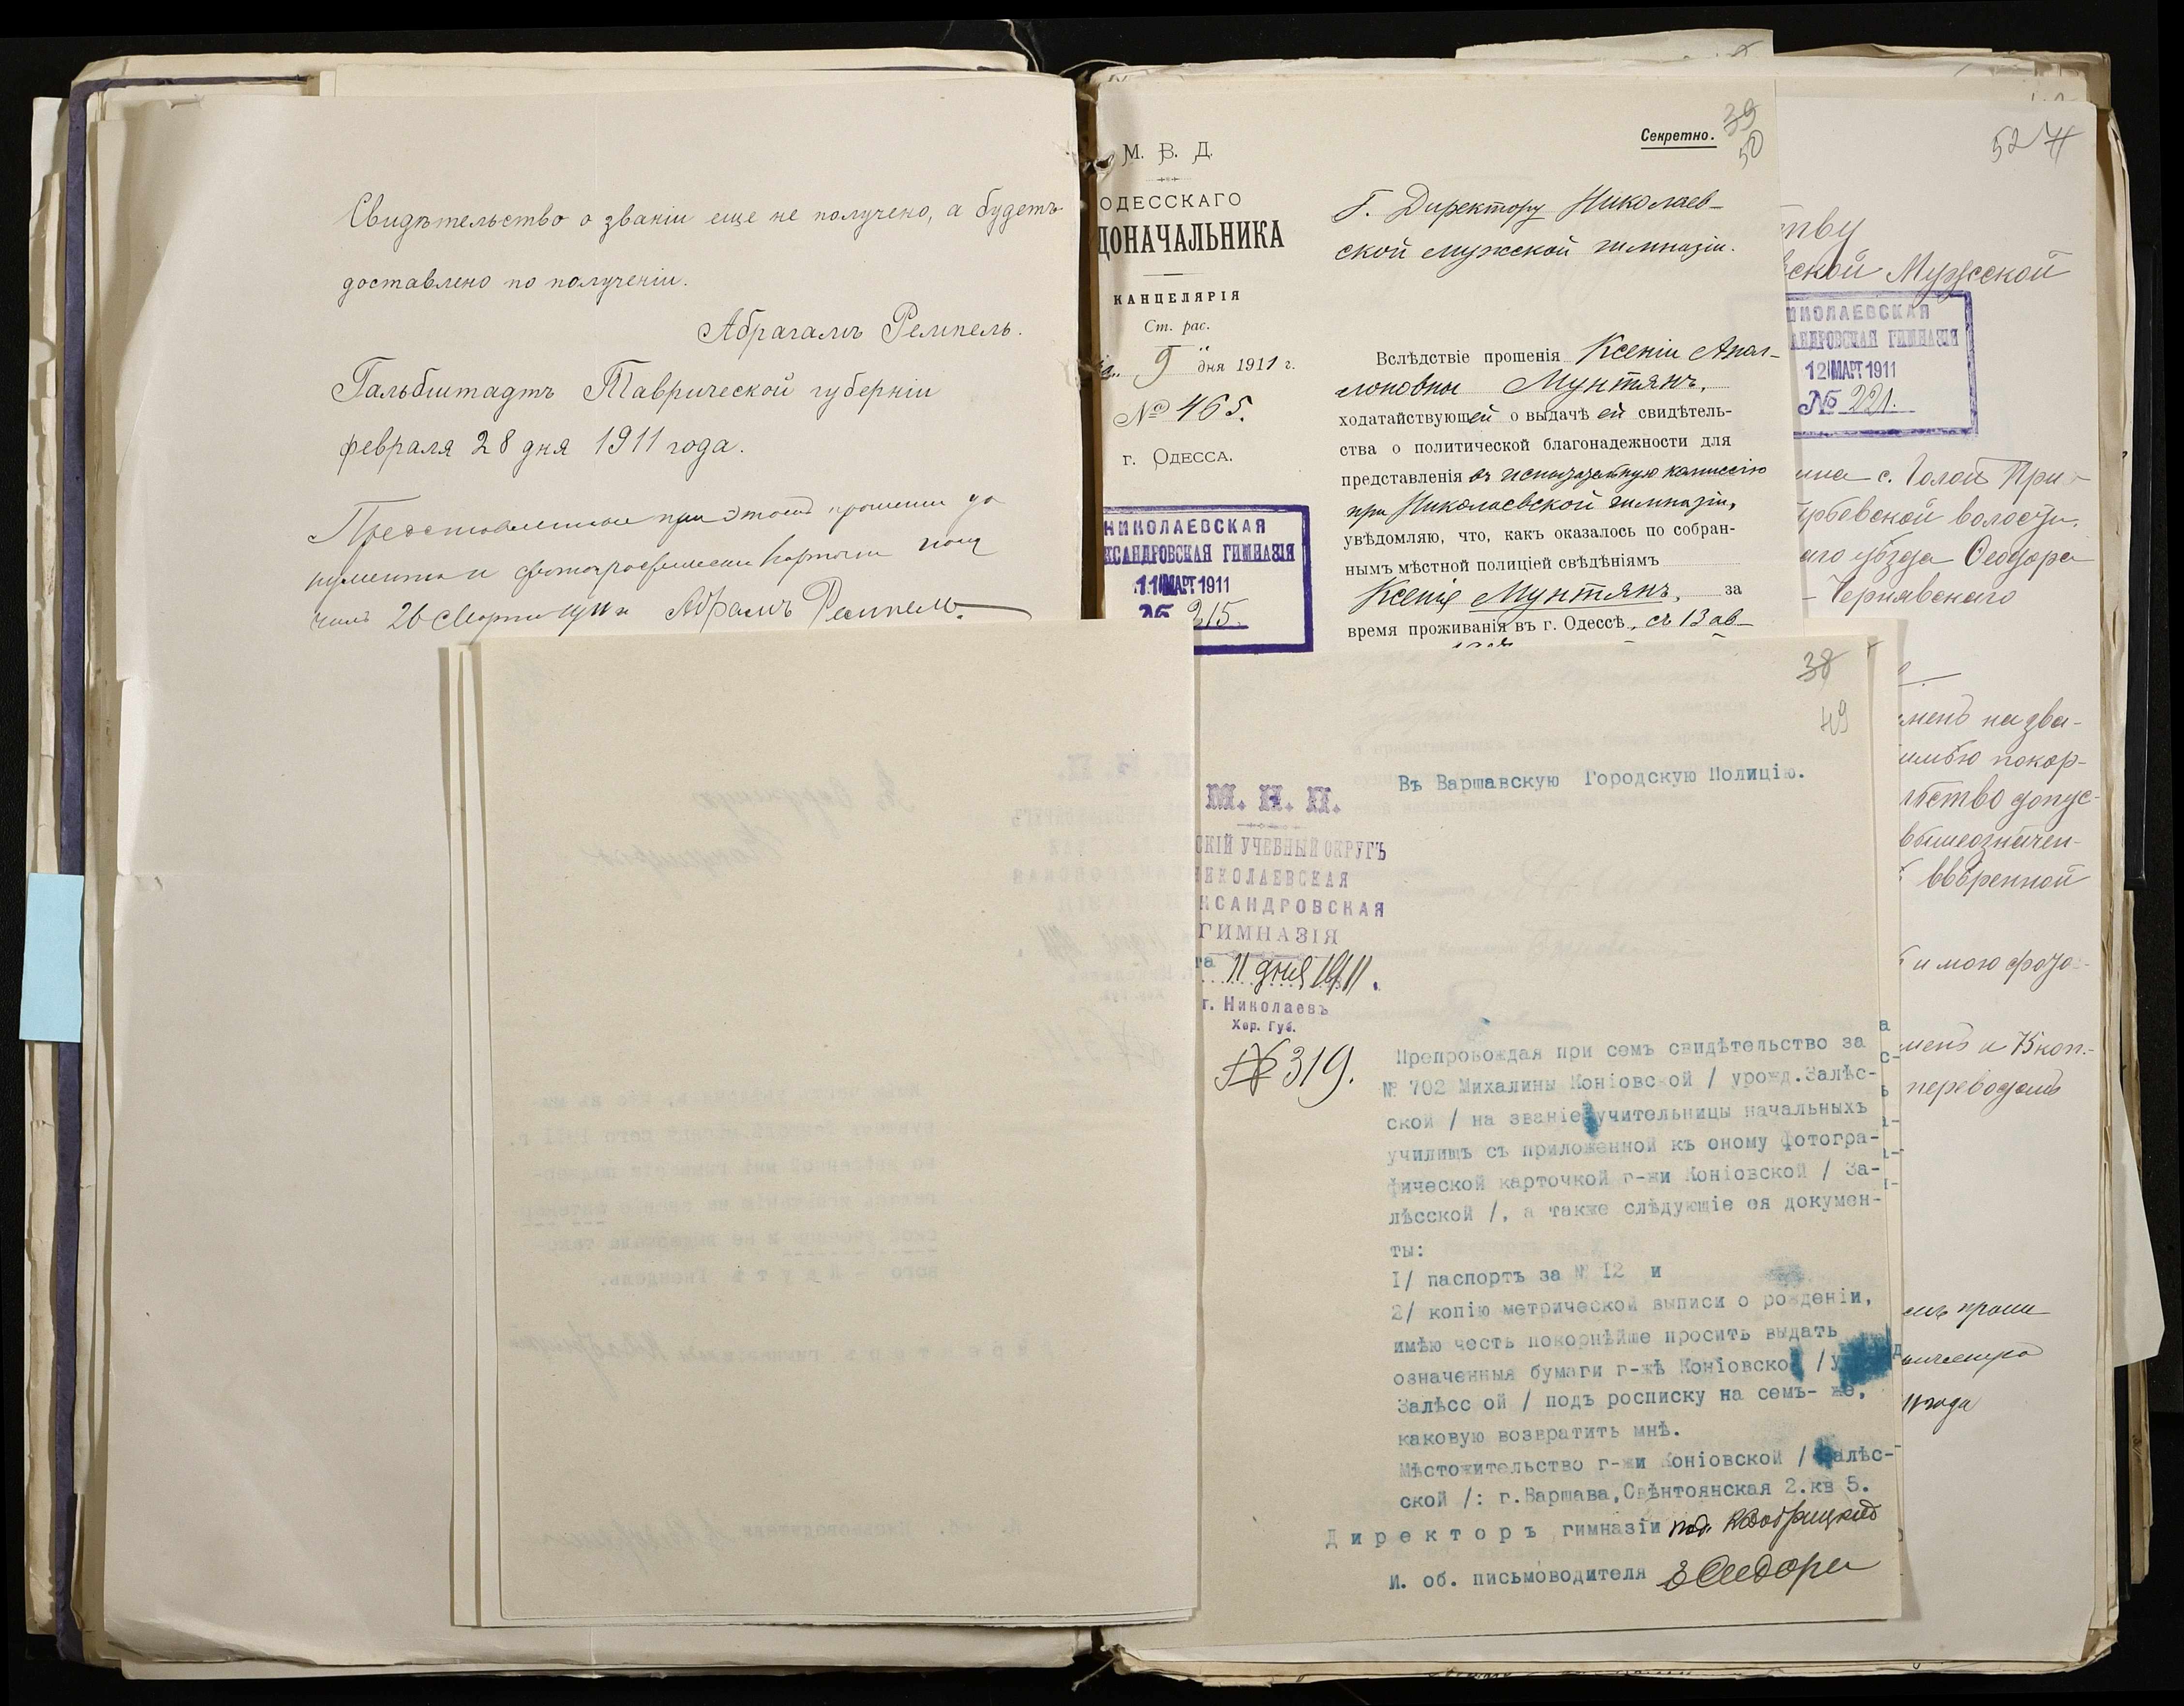 Свидѣтельство о званіи еще не получено, а будетъ
доставлено по полученіи.
Абрагамъ Ремпель.
Гальбштадтъ Таврической губерніи
февраля 28 дня 1911 года.
Представленные при этомъ прошении до
кументы и фотографическ карточки полу
чилъ 26 Марта 1911 г Абрамъ Ремпель.
М. В. Д.
ОДЕССКАГО
ДОНАЧАЛЬНИКА
КАНЦЕЛЯРІЯ
Ст. рас.
9 дня 1911 г.
№ 465.
г. ОДЕССА.
НИКОЛАЕВСКАЯ
КСАНДРОВСКАЯ ГИМНАЗІЯ
11 МАРТ 1911
№ 215.
Секретно.
39
50
Г. Директору Николаев-
ской мужской гимназіи.
Вслѣдствіе прошенія Ксеніи Апол-
лоновны Мунтянъ,
ходатайствующей о выдачѣ ей свидѣтель-
ства о политической благонадежности для
представленія въ испытательную комиссію
при Николаевской гимназіи,
увѣдомляю, что, какъ оказалось по собран-
нымъ мѣстной полиціей свѣдѣніямъ
Ксенія Мунтянъ, за
время проживанія въ г. Одессѣ, съ 13 ав-
52
тву
ской Мужской
НИКОЛАЕВСКАЯ
АНДРОВСКАЯ ГИМНАЗІЯ
12 МАРТ 1911
№ 221.
ина с. Голой При-
рбевской волости,
аго уѣзда Ѳеодора
Чернявскаго
менъ на зва-
покор-
ьство допус-
вышеозначен-
ввѣренной
и мою фото-
менъ и 75 коп.
переводомъ
года
38
49
М. Н. П.
СКІЙ УЧЕБНЫЙ ОКРУГЪ
НИКОЛАЕВСКАЯ
КСАНДРОВСКАЯ
ГИМНАЗІЯ
та 11 дня 1911.
г. Николаевъ
Хер. Губ.
№ 319.
Въ Варшавскую Городскую Полицію.
Препровождая при семъ свидѣтельство за
№ 702 Михалины Коніовской / урожд.Залѣс-
ской / на званіе учительницы начальныхъ
училищъ съ приложенной къ оному фотогра-
фической карточкой г-жи Коніовской / За-
лѣсской /, а также слѣдующіе ея докумен-
ты:
1/ паспортъ за № 12 и
2/ копію метрической выписи о рожденіи,
имѣю честь покорнѣйше просить выдать
означенныя бумаги г-жѣ Коніовской /у
Залѣсс ой / подъ росписку на семъ- же,
каковую возвратить мнѣ.
Мѣстожительство г-жи Коніовской / Залѣс-
ской /: г.Варшава,Свѣнтоянская 2.кв 5.
Директоръ гимназіи под.
И. об. письмоводителя